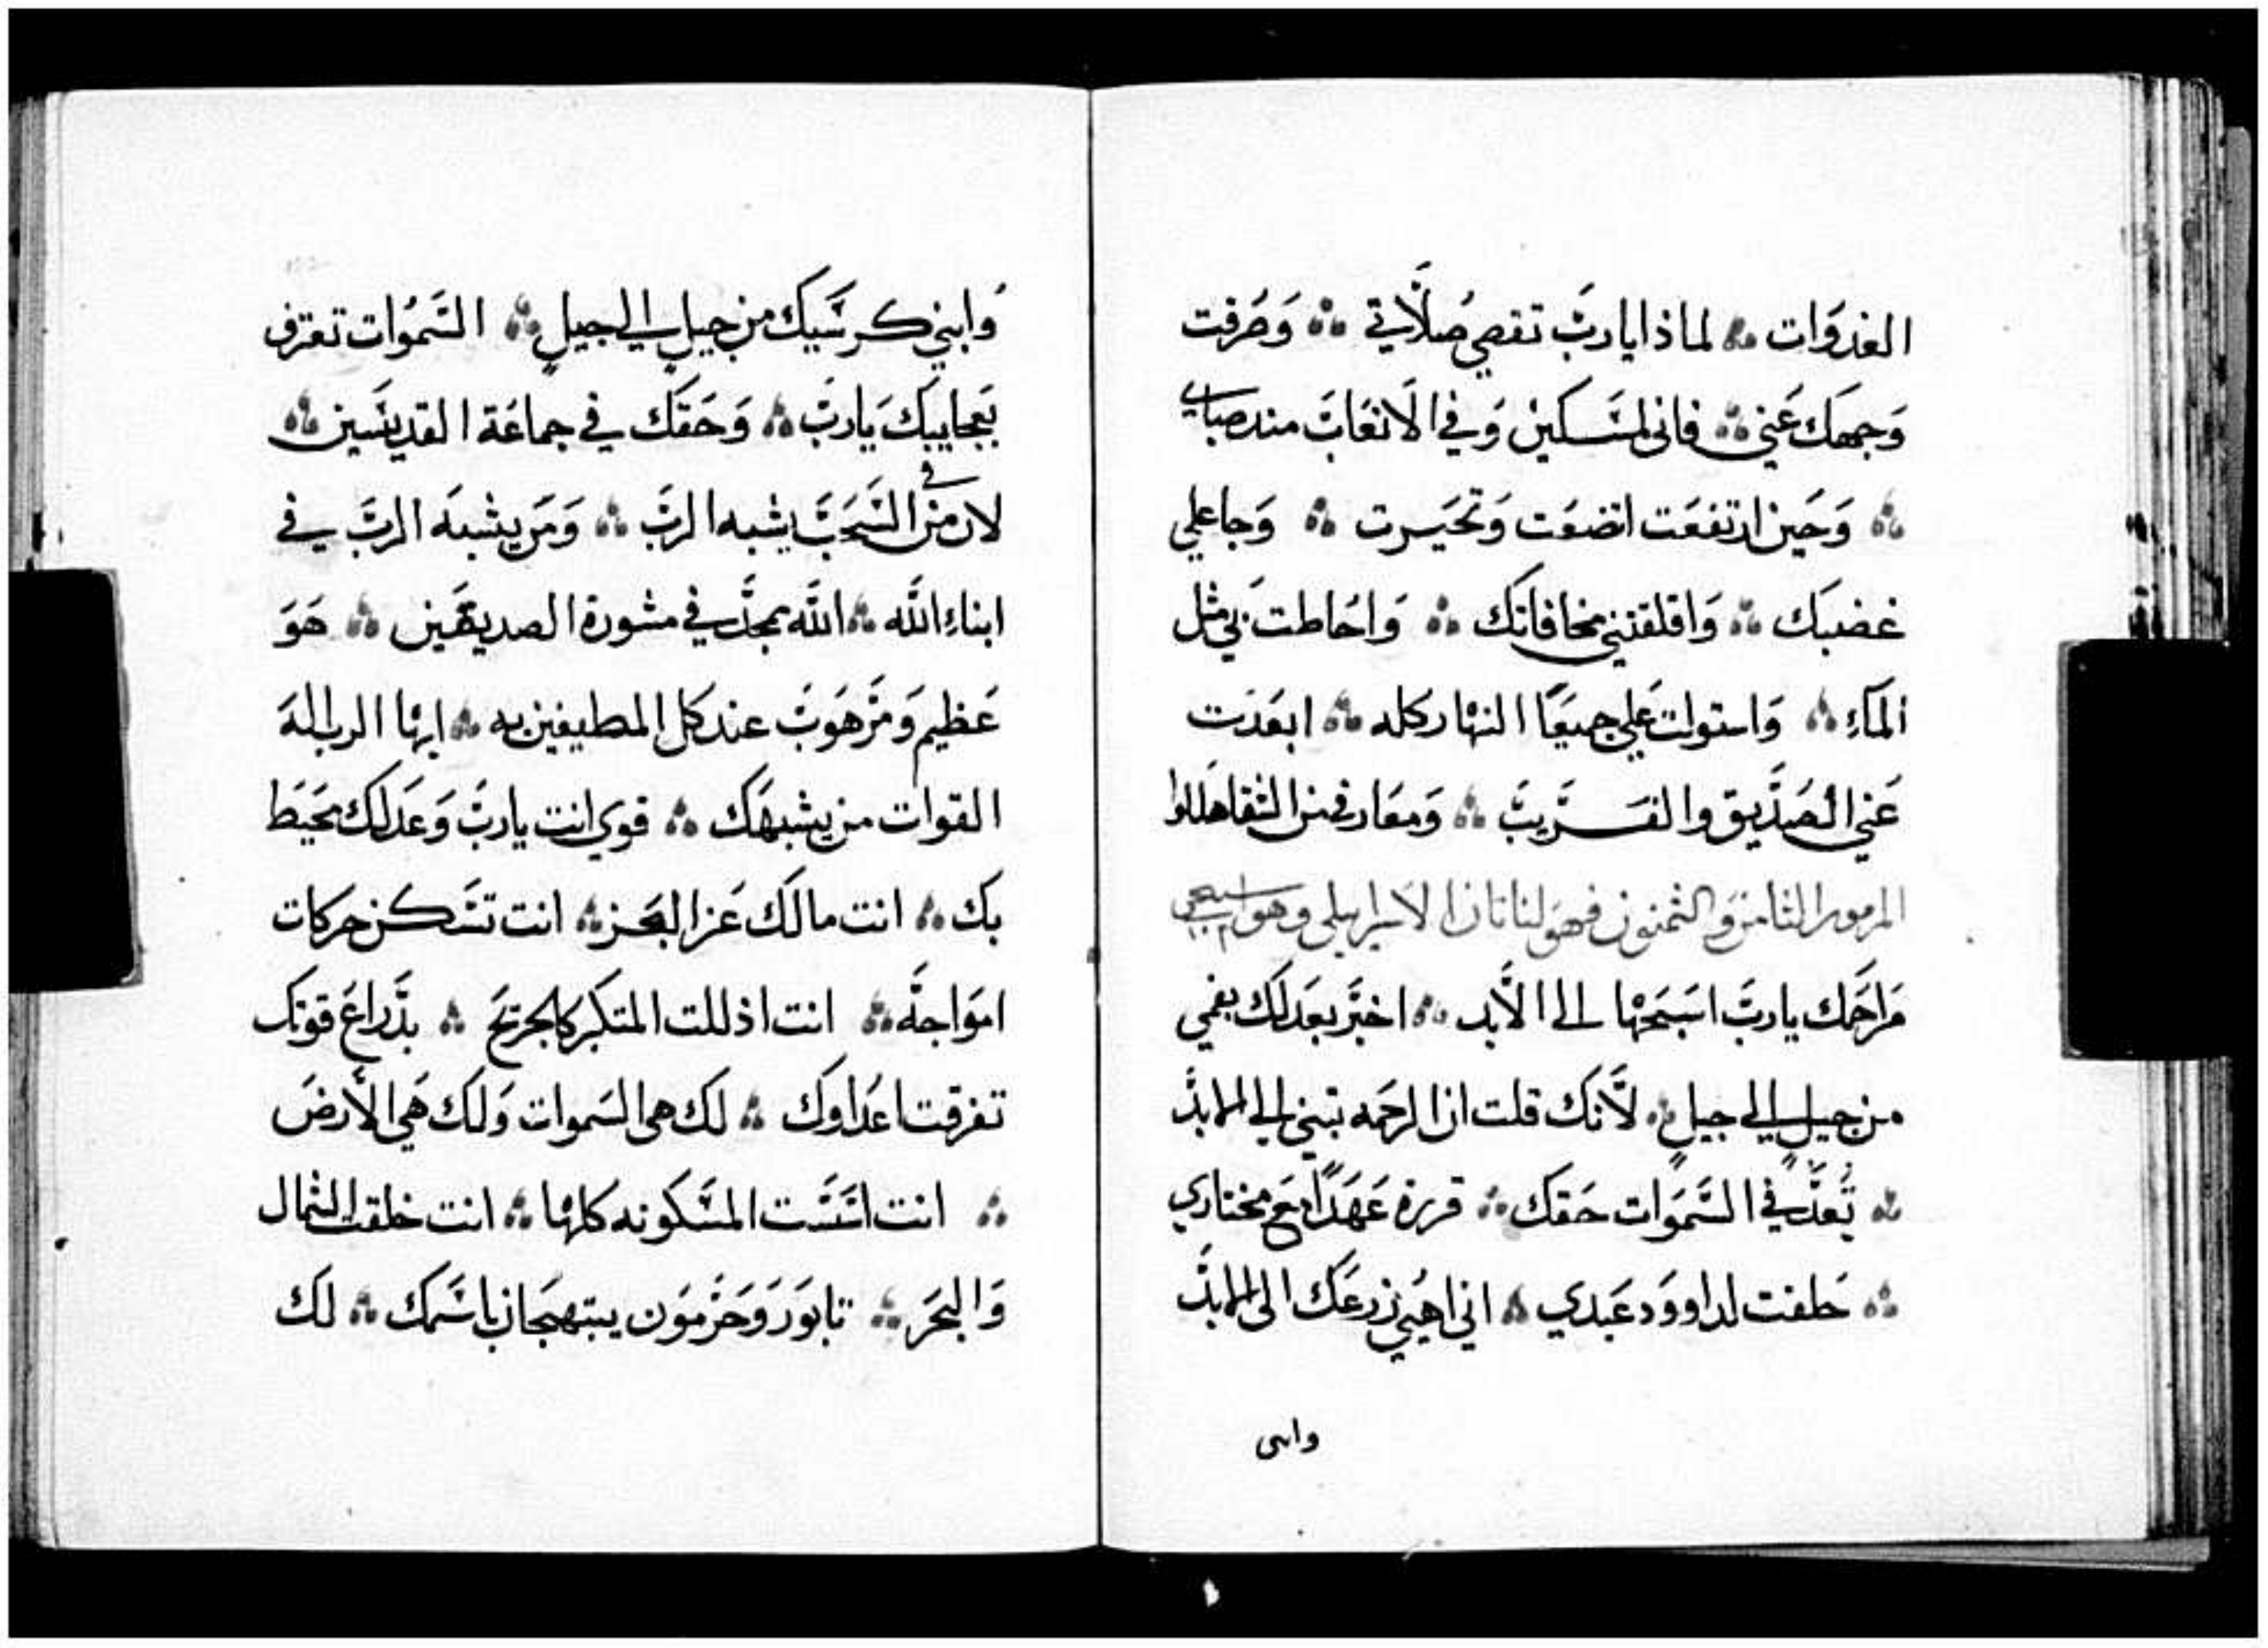 الغدوات ∴ لماذا يارب تقصي صلاتي ∴ وصرفت
وجهك عني ∴ فاني لمسكين وفي الاتعاب مند صباي
∴ وحين ارتفعت اتضعت وتحيرت ∴ وجا علي
غضبك ∴ واقلقتني مخافاتك ∴ واحاطت بي مثل
الماء ∴ واستولت علي جميعًا النهار كله ∴ ابعدت
عني الصديق والقريب ∴ ومعارفي من الشقا هللوا
المزمور الثامن والثمنون فهو لناتان الاسرايلي وهو
مراحمك يارب اسبحها الى الابد ∴ اخبر بعدلك بفمي
من جيل الي جيلٍ ∴ لأنك قلت ان الرحمه تبني الي الابد
∴ تُعدّ في السموات حقك ∴ قررة عهدًا مع مختاري
∴ حلفت لداوود عبدي ∴ اني اهيي زرعك الى الابد
وابني
وابني كرسيك من جيل الي جيلٍ ∴ السموات تعترف
بعجايبك يارب ∴ وحقك في جماعة القديسين ∴
لان من في السحب يشبه الرب ∴ ومن يشبه الرب في
ابناء الله ∴ الله يمجد في مشورة الصديقين ∴ هو
عظيم ومرهوب عند كل المطيفين به ∴ ايها الرب اله
القوات من يشبهك ∴ قوي انت يارب وعدلك محيط
بك ∴ انت مالك عز البحر ∴ انت تسكن حركات
امواجه ∴ انت اذللت المتكبر كالجريح ∴ بذراع قوتك
تفرقت اعداوك ∴ لك هى السموات ولك هي الأرض
∴ انت اسست المسكونه كلها ∴ انت خلقت الشمال
والبحر ∴ تابور وحرمون يبتهجان باسمك ∴ لك